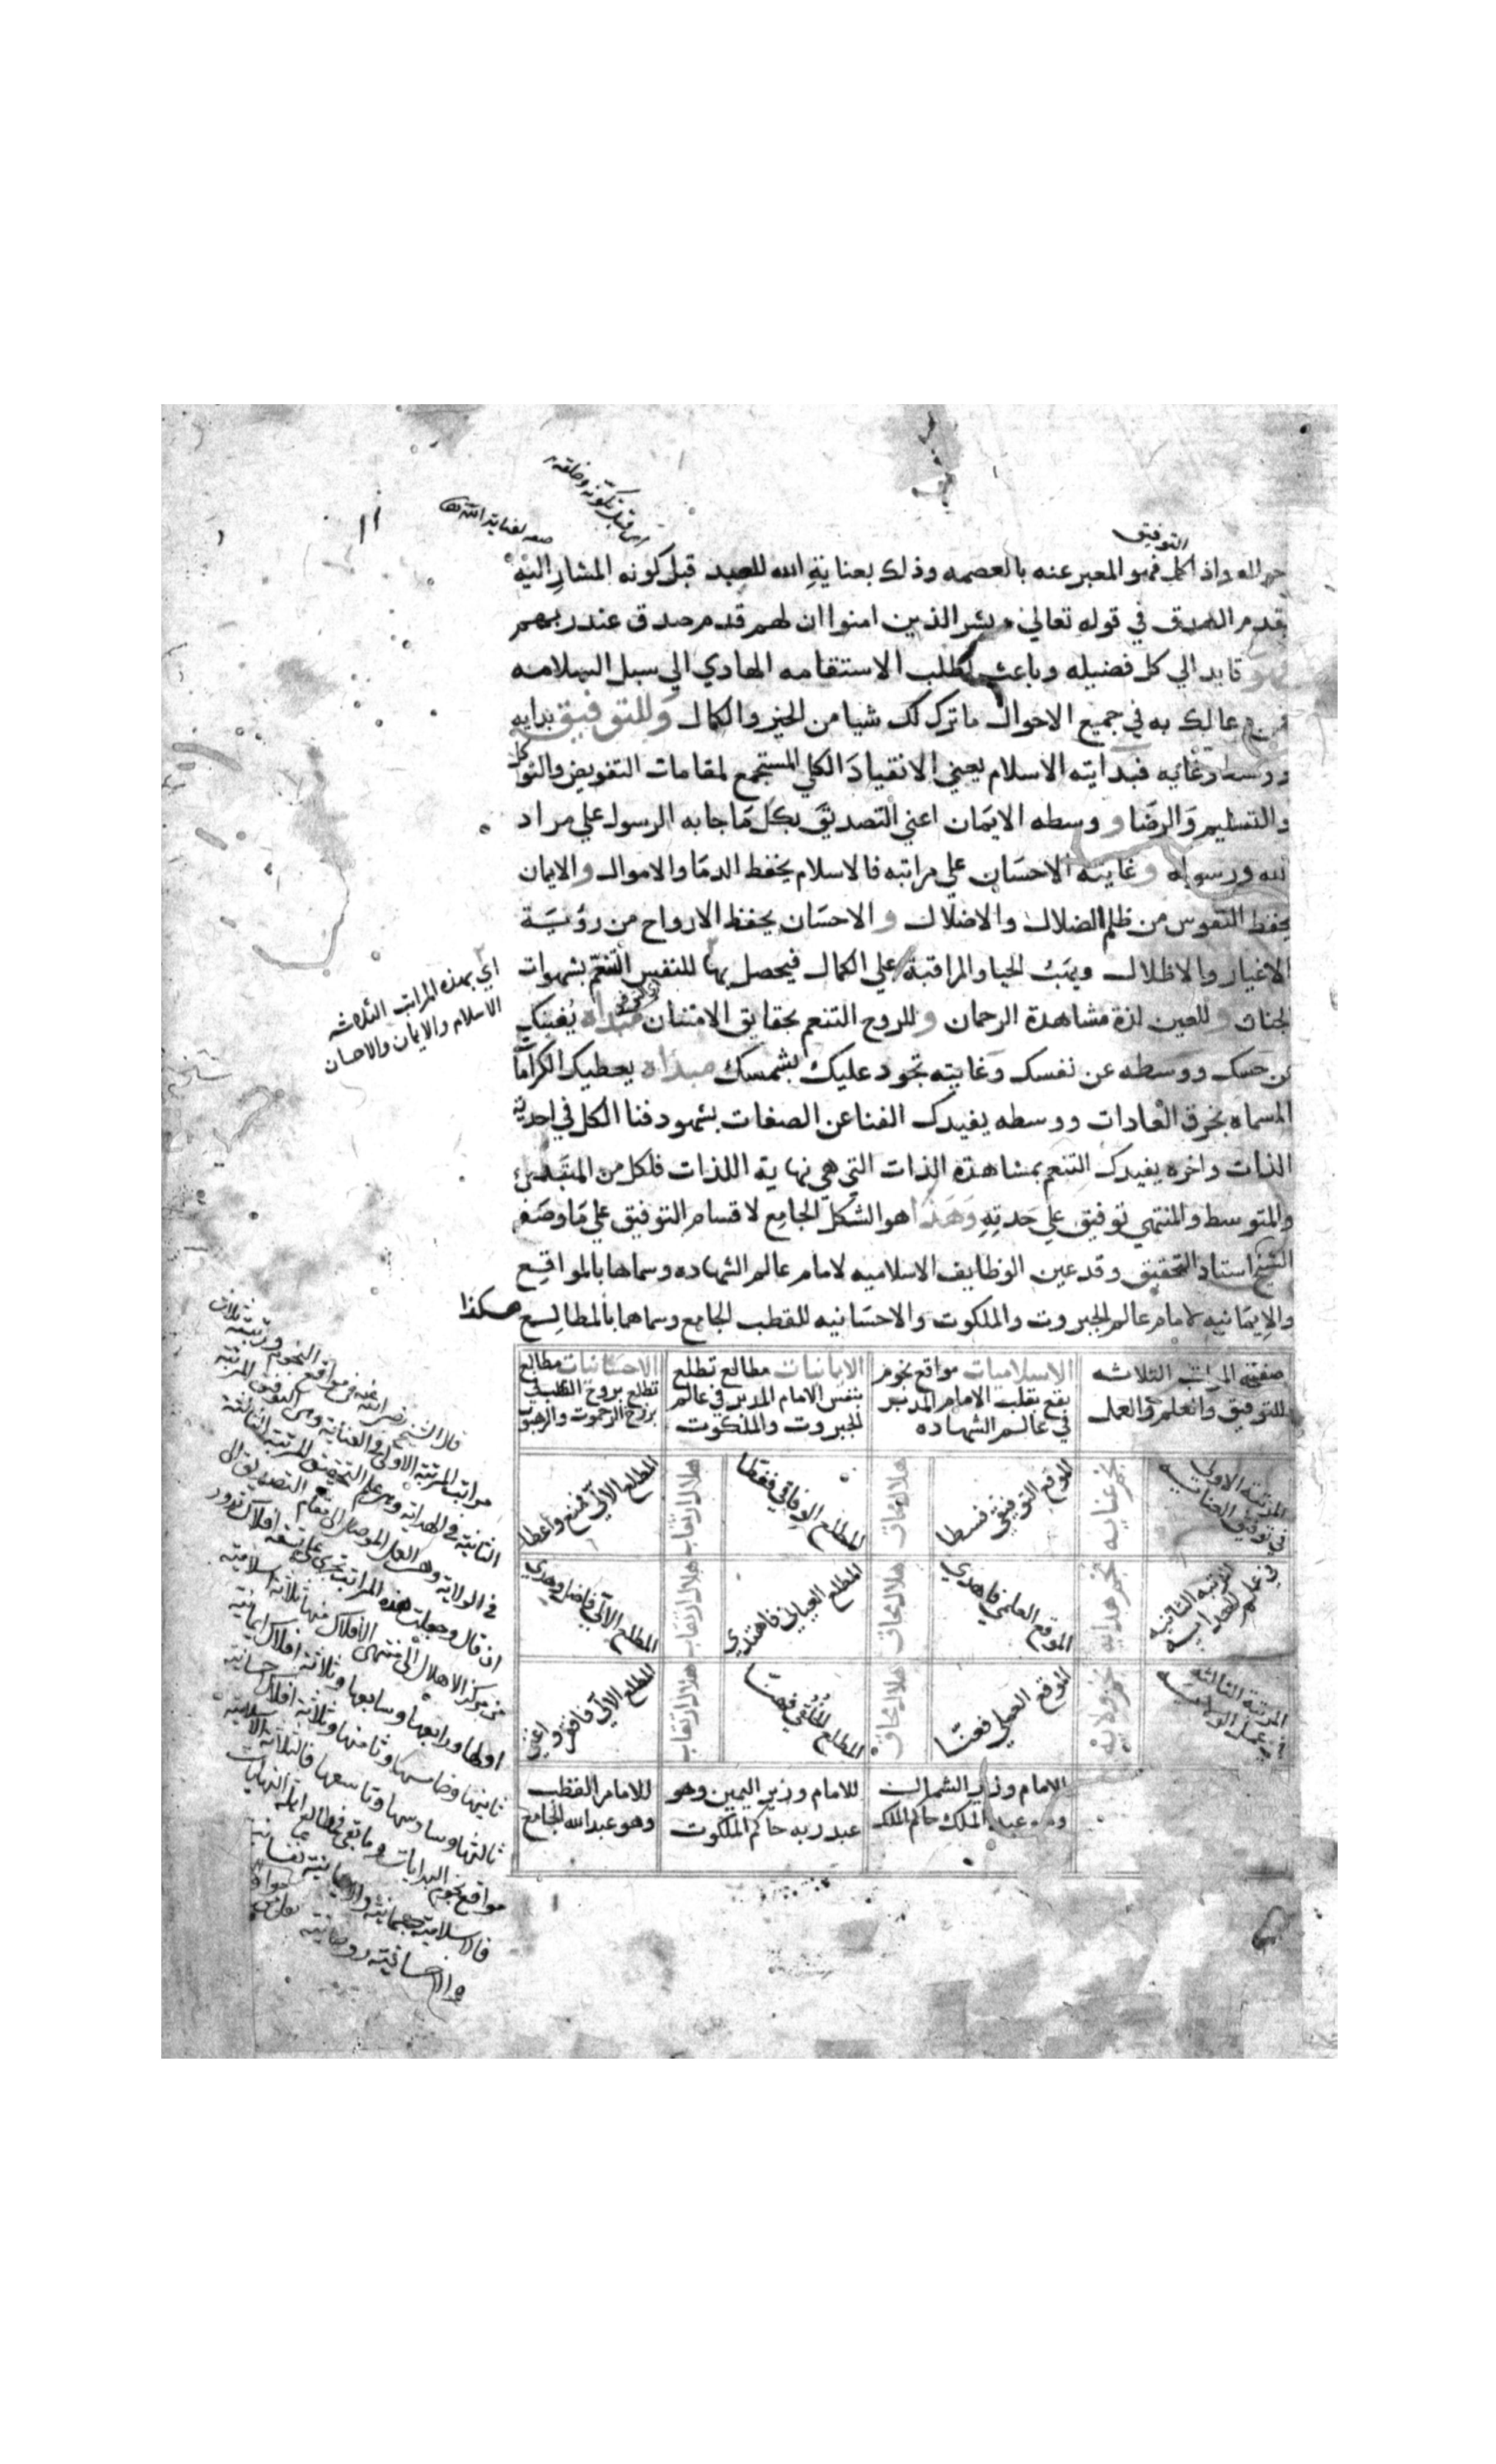 التوفيق
اي قبل تكونه وخلقه
صفه لعناية الله تعالى
١١
واذا كمل فهو المعبر عنه بالعصمه وذلك بعناية الله للعبد قبل كونه المشار اليه
بقدم الصدق في قوله تعالي وبشر الذين امنوا ان لهم قدم صدق عند ربهم
قايد الي كل فضيله وباعث لطلب الاستقامه الهادي الي سبل السلامه
عالك به في جميع الاحوال ما ترك لك شيا من الخير والكمال وللتوفيق بدايه
ووسط وغايه فبدايته الاسلام يعني الانقياد الكلي المستجمع لمقامات التفويض والتوكل
والتسليم والرضا و وسطه الايمان اعني التصديق بكل ما جا به الرسول علي مراد
الله ورسوله وغايته الاحسان علي مراتبه فالاسلام يحفظ الدما والاموال والايمان
يحفظ النفوس من ظلم الضلال والاضلال والاحسان يحفظ الارواح من رؤية
الاغيار والاظلال ويهب الحيا والمراقبة علي الكمال فيحصل بها للنفس التنعم بشهوات
الجنان وللعين لذة مشاهدة الرحمان وللروح التنعم بحقايق الامتنان مبداه يفنيك
عن حسك ووسطه عن نفسك وغايته تجود عليك بشمسك مبداه يعطيك الكرامات
المسماه بخرق العادات ووسطه يفيدك الفنا عن الصفات بشهود فنا الكل في احدية
الذات واخره يفيدك التنعم بمشاهدة الذات التي هي نهاية اللذات فلكل من المبتدئ
والمتوسط والمنتهي توفيق علي حدته وهذا هو الشكل الجامع لاقسام التوفيق علي ما وضعه
الشيخ استاد التحقيق وقد عين الوظايف الاسلاميه لامام عالم الشهاده وسماها بالمواقع
والايمانيه لامام عالم الجبروت والملكوت والاحسانيه للقطب الجامع وسماهما بالمطالع هكذا
اي بهذه المراتب الثلاثه
الاسلام والايمان والاحسان
صفة المراتب الثلاثه
للتوفيق والعلم والعمل
الاسلاميات مواقع نجوم
يقع بقلب الامام المدبر
في عالم الشهاده
الايمانيات مطالع تطلع
بنفس الامام المدبر في عالم
الجبروت والملكوت
الاحسانيات مطالع
تطلع بروح القطب في
برزخ الرحموت والرهبوت
المرتبه الاولى
في توفيق العنايه
نجم عنايه
الموقع التوفيقي فسطا
هلال محاق
المطلع الوفاقي فغطا
هلال ارتقاب
المطلع الالي فمنع واعطا
المرتبه الثانيه
في علم الهدايه
نجم هدايه
الموقع العلمي فاهدي
هلال محاق
المطلع العياني فاهتدي
هلال ارتقاب
المطلع الالي فاضل وهدي
المرتبه الثالثه
في عمل الولايه
نجم ولايه
الموقع العملي فعنا
هلال محاق
المطلع الخلقي فهنا
هلال ارتقاب
المطلع الالي فافقر واغنى
للامام وزير الشمال
وهو عبد الملك حاكم الملك
للامام وزير اليمين وهو
عبد ربه حاكم الملكوت
للامام القطب
وهو عبد الله الجامع
قال الشيخ رضي الله عنه في مواقع النجوم ورتبته ثلاث
مراتب المرتبة الاولى في العناية وهي التوفيق المرتبة
الثانية في الهداية وهي علم التحقيق المرتبة الثالثة
في الولاية وهي العمل الموصل الى مقام الصديق الى
ان قال وجعلت هذه المراتب تجري على تسعة افلاك تدور
من مركز الاهلال الى منتهى الافلاك منها ثلاثة اسلامية
اولها ورابعها وسابعها وثلاثة افلاك ايمانية
ثانيها وخامسها وثامنها وثلاثة افلاك احسانية
ثالثها وسادسها وتاسعها فالثلاثة الاسلامية
مواقع نجوم البدايات وما بقي مطالع اهلة النهايات
فالاسلامية جسمانية والايمانية نفسانية
والاحسانية روحانية